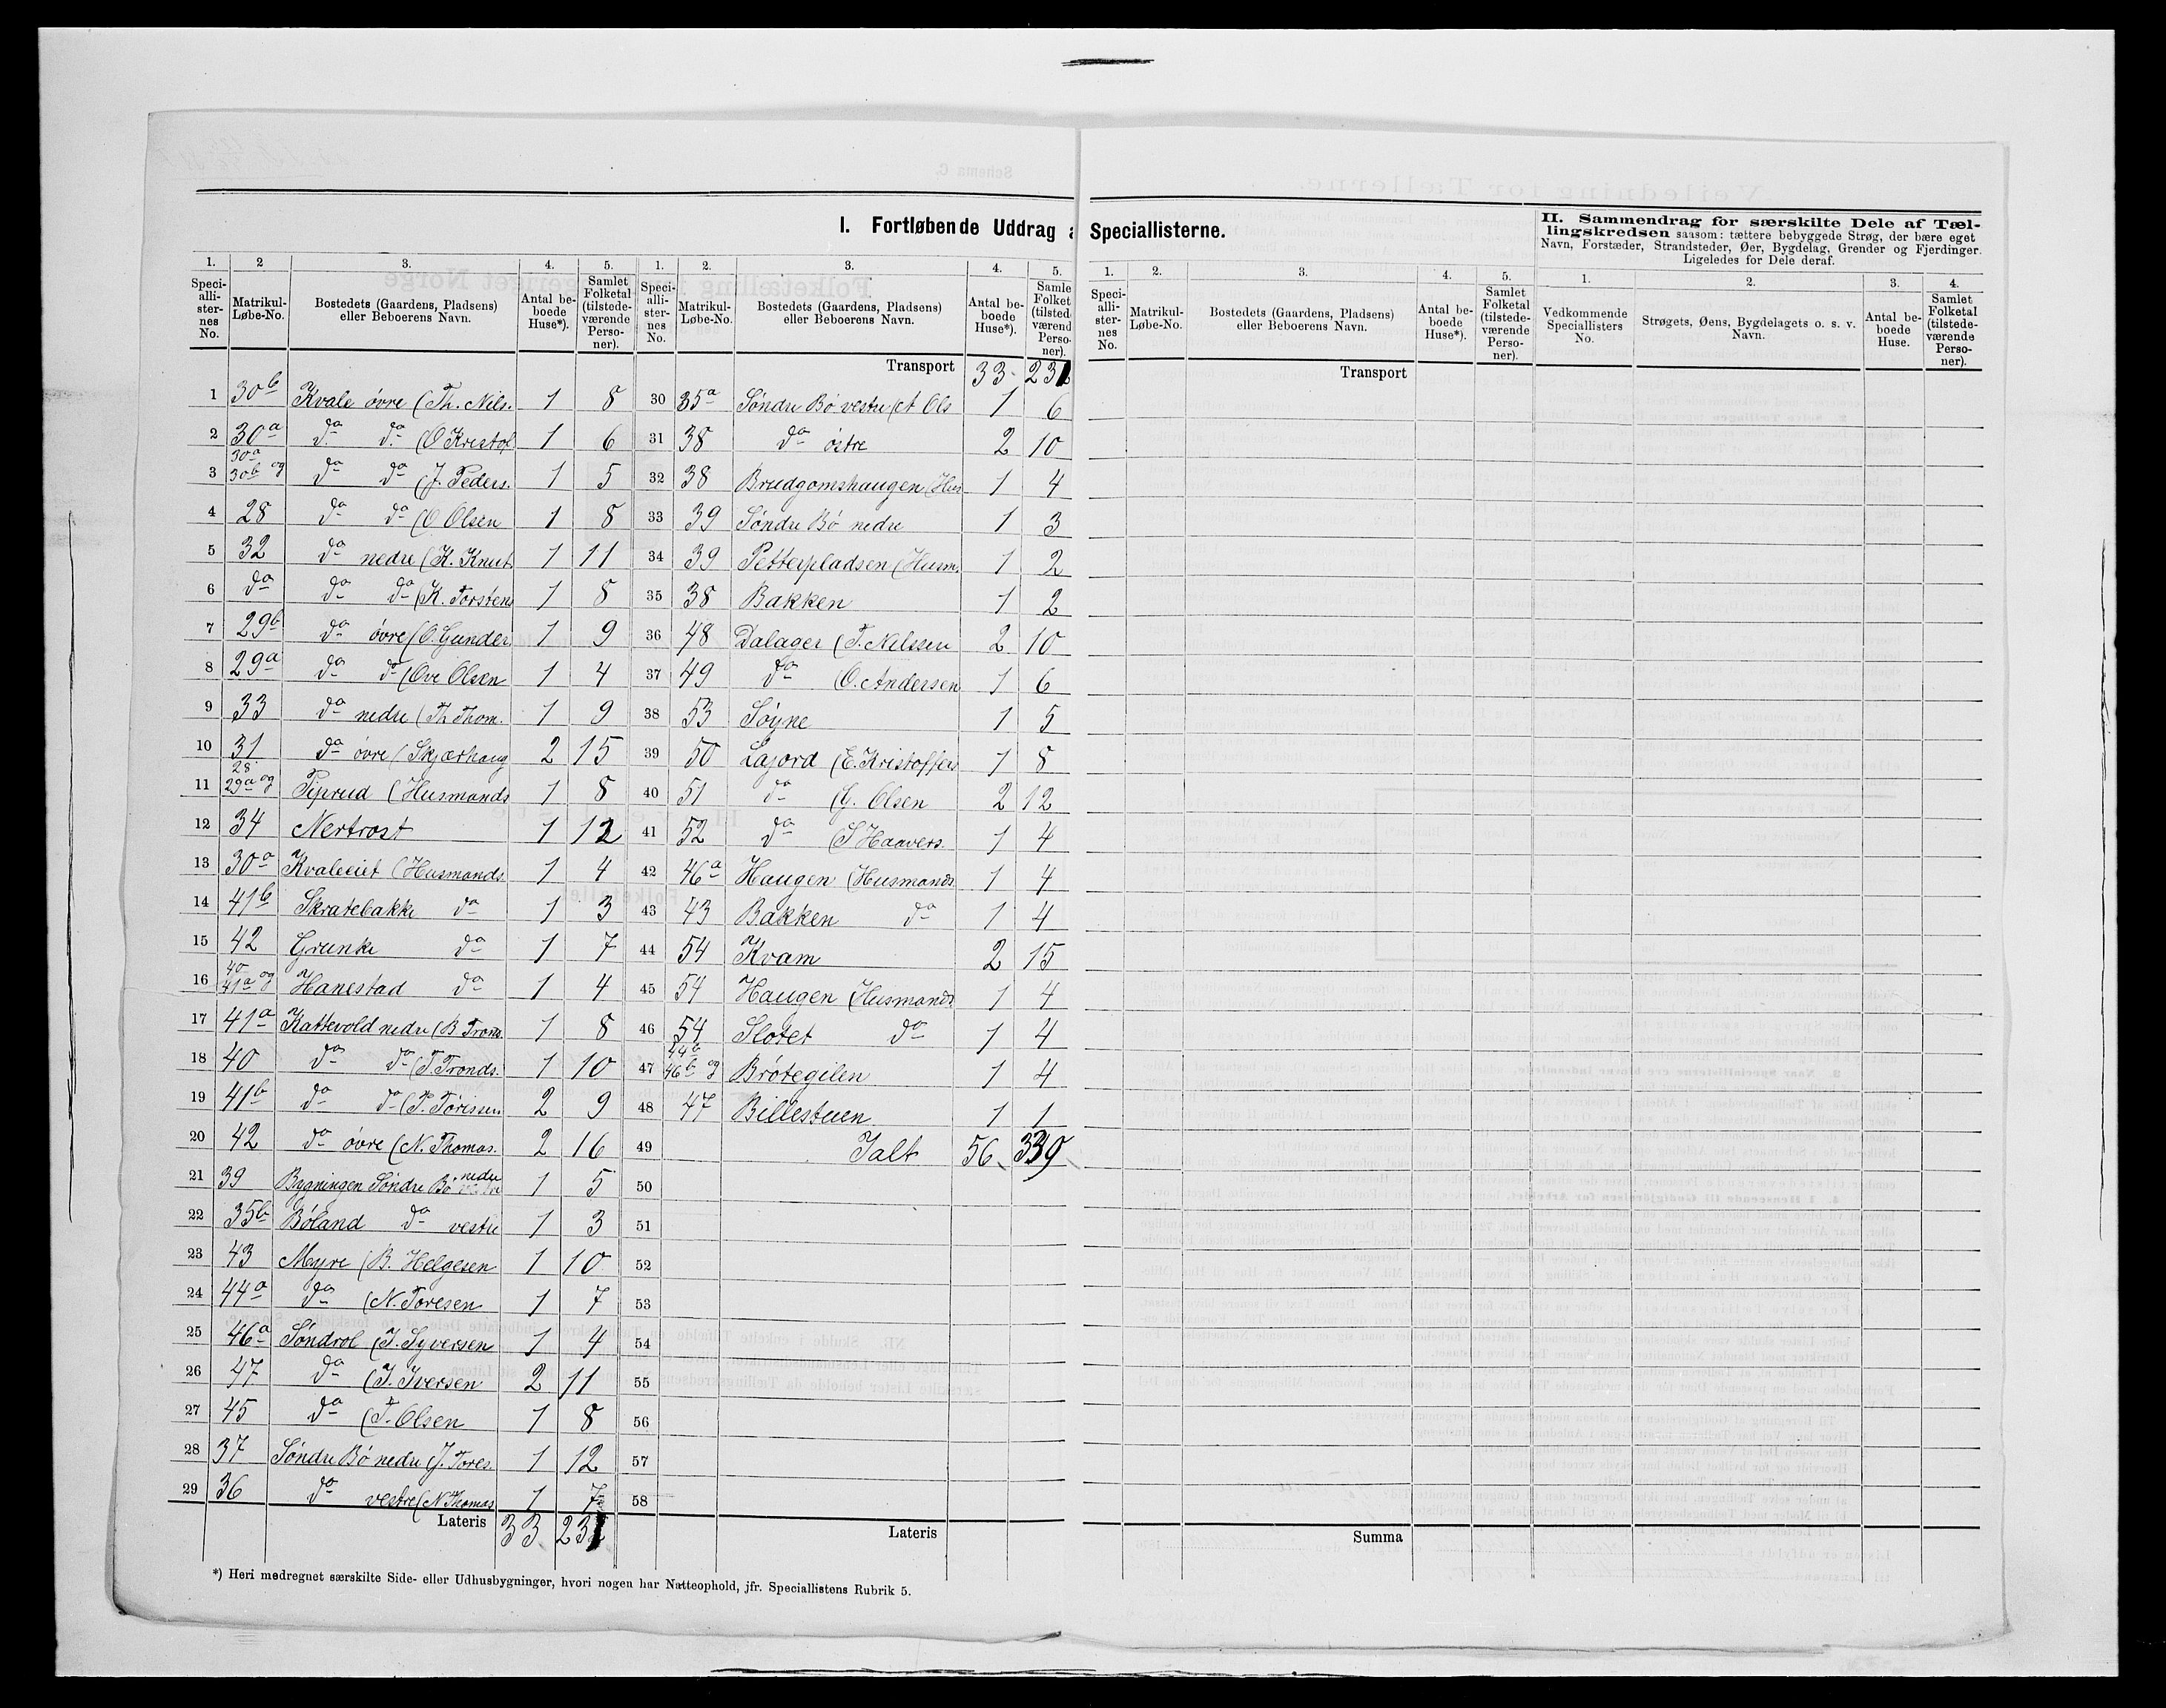 I. Fortløbende Uddrag a Speciallisterne.
1. 2 3. 4. 5.
Speciallisternes No. Matrikul-Løbe-No. Bostedets (Gaardens, Pladsens) eller Beboerens Navn. Antal beboede Huse*). Samlet Folketal (tilstedeværende Personer).
1 30b Kvale øvre (Th. Nils. 1 8
2 30a do do (O Kristof 1 6
3 30a 30b og do do (J. Peders. 1 5
4 28 do do (O Olsen 1 8
5 32 do nedre (K. Knut 1 11
6 do do do (K. Torsten 1 8
7 29b do øvre (O. Gunder 1 9
8 29a do do (Ove Olsen 1 4
9 33 do nedre (Th Thom. 1 9
10 31 do øvre (Skjærhaug 2 15
11 28 29a og Piprud (Husmands 1 8
12 34 Nertrost 1 12
13 30a Kvaleeiet (Husmands. 1 4
14 41b Skratebakke do 1 3
15 42 Grunke do 1 7
16 40 41a og Hanestad do 1 4
17 41a Kattevold nedre (B. Trons. 1 8
18 40 do do (T. Tronds. 1 10
19 41b do do (P. Torissen. 2 9
20 42 do øvre (N. Thomas. 2 16
21 39 Bygningen Søndre Bø nedre 1 5
22 35b Bøland do vestre 1 3
23 43 Meyre (B. Helgesen 1 10
24 44a do (N. Toresen 1 7
25 46a Søndrol (T. Syversen 1 4
26 47 do (I. Iversen 2 11
27 45 do (T. Olsen 1 8
28 37 Søndre Bø nedre (J. Tores. 1 12
29 36 do vestre (N Thomas 1 7
Lateris 33. 231
1. 2. 3. 4. 5.
Speciallisternes No. Matrikul-Løbe-No. Bostedets (Gaardens, Pladsens) eller Beboerens Navn. Antal beboede Huse*). Samle Folket (tilsted værend Personer).
Transport 33. 231
30 35a Søndre Bø vestre (A Ols 1 6
31 38 do østre 2 10
32 38 Brudgomshaugen (Hus 1 4
33 39 Søndre Bø nedre 1 3
34 39 Petterpladsen (Husm. 1 2
35 38 Bakken 1 2
36 48 Dalager (T. Nilssen 2 10
37 49 do (O. Andersen 1 6
38 53 Søyne 1 5
39 50 Lajord (E. Kristoffers 1 8
40 51 do (G. Olsen 2 12
41 52 do (S Haavers. 1 4
42 46a Haugen (Husmands. 1 4
43 43 Bakken do 1 4
44 54 Kvam 2 15
45 54 Haugen (Husmands. 1 4
46 54 Slotet do 1 4
47 44b 46b og Brøtegilen 1 4
48 47 Billestuen 1 1
49 Ialt 56. 339
50
51
52
53
54
55
56
57
58
Lateris
*) Heri medregnet særskilte Side- eller Udhusbygninger, hvori nogen har Natteophold, jfr. Speciallistens Rubrik 5.
1. 2. 3. 4. 5.
Speciallisternes No. Matrikul-Løbe-No. Bostedets (Gaardens, Pladsens) eller Beboerens Navn. Antal beboede Huse*). Samlet Folketal (tilstedeværende Personer).
Transport
Summa
II. Sammendrag for særskilte Dele af Tællingskredsen saasom: tættere bebyggede Strøg, der bære eget
Navn, Forstæder, Strandsteder, Øer, Bygdelag, Grender og Fjerdinger.
Ligeledes for Dele deraf.
1. 2. 3. 4.
Vedkommende Speciallisters No. Strøgets, Øens, Bygdelagets o. s. v. Navn. Antal beboede Huse. Samlet Folketal (tilstedeværende Personer).